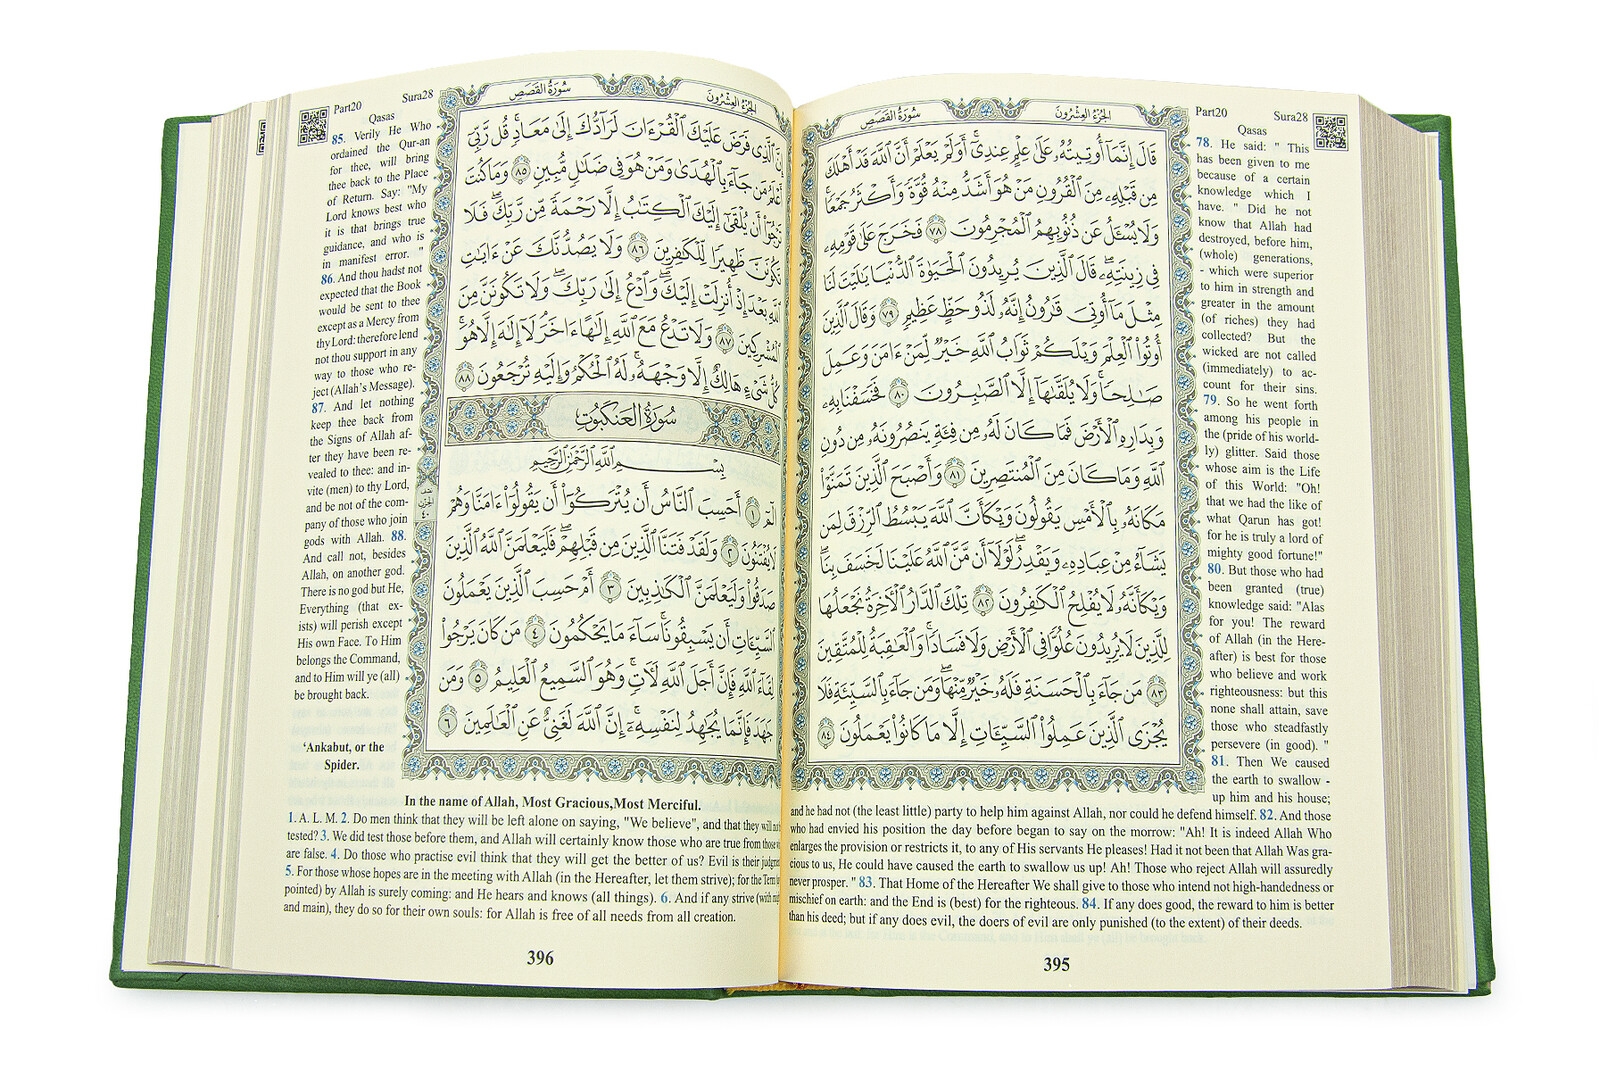 Part20 Sura28
Qasas
الجُزْءُ العِشْرُونَ
سُورَةُ القَصَصِ
قَالَ إِنَّمَآ أُوتِيتُهُۥ عَلَىٰ عِلْمٍ عِندِىٓ ۚ أَوَلَمْ يَعْلَمْ أَنَّ ٱللَّهَ قَدْ أَهْلَكَ
مِن قَبْلِهِۦ مِنَ ٱلْقُرُونِ مَنْ هُوَ أَشَدُّ مِنْهُ قُوَّةً وَأَكْثَرُ جَمْعًا ۚ
وَلَا يُسْـَٔلُ عَن ذُنُوبِهِمُ ٱلْمُجْرِمُونَ ٧٨ فَخَرَجَ عَلَىٰ قَوْمِهِۦ
فِى زِينَتِهِۦ ۖ قَالَ ٱلَّذِينَ يُرِيدُونَ ٱلْحَيَوٰةَ ٱلدُّنْيَا يَـٰلَيْتَ لَنَا
مِثْلَ مَآ أُوتِىَ قَـٰرُونُ إِنَّهُۥ لَذُو حَظٍّ عَظِيمٍ ٧٩ وَقَالَ ٱلَّذِينَ
أُوتُوا۟ ٱلْعِلْمَ وَيْلَكُمْ ثَوَابُ ٱللَّهِ خَيْرٌ لِّمَنْ ءَامَنَ وَعَمِلَ
صَـٰلِحًا وَلَا يُلَقَّىٰهَآ إِلَّا ٱلصَّـٰبِرُونَ ٨٠ فَخَسَفْنَا بِهِۦ
وَبِدَارِهِ ٱلْأَرْضَ فَمَا كَانَ لَهُۥ مِن فِئَةٍ يَنصُرُونَهُۥ مِن دُونِ
ٱللَّهِ وَمَا كَانَ مِنَ ٱلْمُنتَصِرِينَ ٨١ وَأَصْبَحَ ٱلَّذِينَ تَمَنَّوْا۟
مَكَانَهُۥ بِٱلْأَمْسِ يَقُولُونَ وَيْكَأَنَّ ٱللَّهَ يَبْسُطُ ٱلرِّزْقَ لِمَن
يَشَآءُ مِنْ عِبَادِهِۦ وَيَقْدِرُ ۖ لَوْلَآ أَن مَّنَّ ٱللَّهُ عَلَيْنَا لَخَسَفَ بِنَا ۖ
وَيْكَأَنَّهُۥ لَا يُفْلِحُ ٱلْكَـٰفِرُونَ ٨٢ تِلْكَ ٱلدَّارُ ٱلْـَٔاخِرَةُ نَجْعَلُهَا
لِلَّذِينَ لَا يُرِيدُونَ عُلُوًّا فِى ٱلْأَرْضِ وَلَا فَسَادًا ۚ وَٱلْعَـٰقِبَةُ لِلْمُتَّقِينَ
٨٣ مَن جَآءَ بِٱلْحَسَنَةِ فَلَهُۥ خَيْرٌ مِّنْهَا ۖ وَمَن جَآءَ بِٱلسَّيِّئَةِ فَلَا
يُجْزَى ٱلَّذِينَ عَمِلُوا۟ ٱلسَّيِّـَٔاتِ إِلَّا مَا كَانُوا۟ يَعْمَلُونَ ٨٤
78. He said: " This
has been given to me
because of a certain
knowledge which I
have. " Did he not
know that Allah had
destroyed, before him,
(whole) generations,
- which were superior
to him in strength and
greater in the amount
(of riches) they had
collected? But the
wicked are not called
(immediately) to ac-
count for their sins.
79. So he went forth
among his people in
the (pride of his world-
ly) glitter. Said those
whose aim is the Life
of this World: "Oh!
that we had the like of
what Qarun has got!
for he is truly a lord of
mighty good fortune!"
80. But those who had
been granted (true)
knowledge said: "Alas
for you! The reward
of Allah (in the Here-
after) is best for those
who believe and work
righteousness: but this
none shall attain, save
those who steadfastly
persevere (in good). "
81. Then We caused
the earth to swallow -
up him and his house;
and he had not (the least little) party to help him against Allah, nor could he defend himself. 82. And those
who had envied his position the day before began to say on the morrow: "Ah! It is indeed Allah Who
enlarges the provision or restricts it, to any of His servants He pleases! Had it not been that Allah Was gra-
cious to us, He could have caused the earth to swallow us up! Ah! Those who reject Allah will assuredly
never prosper. " 83. That Home of the Hereafter We shall give to those who intend not high-handedness or
mischief on earth: and the End is (best) for the righteous. 84. If any does good, the reward to him is better
than his deed; but if any does evil, the doers of evil are only punished (to the extent) of their deeds.
395
Part20 Sura28
Qasas
الجُزْءُ العِشْرُونَ
سُورَةُ القَصَصِ
إِنَّ ٱلَّذِى فَرَضَ عَلَيْكَ ٱلْقُرْءَانَ لَرَآدُّكَ إِلَىٰ مَعَادٍ ۚ قُل رَّبِّىٓ
أَعْلَمُ مَن جَآءَ بِٱلْهُدَىٰ وَمَنْ هُوَ فِى ضَلَـٰلٍ مُّبِينٍ ٨٥ وَمَا كُنتَ
تَرْجُوٓا۟ أَن يُلْقَىٰٓ إِلَيْكَ ٱلْكِتَـٰبُ إِلَّا رَحْمَةً مِّن رَّبِّكَ ۖ فَلَا
تَكُونَنَّ ظَهِيرًا لِّلْكَـٰفِرِينَ ٨٦ وَلَا يَصُدُّنَّكَ عَنْ ءَايَـٰتِ
ٱللَّهِ بَعْدَ إِذْ أُنزِلَتْ إِلَيْكَ ۖ وَٱدْعُ إِلَىٰ رَبِّكَ ۖ وَلَا تَكُونَنَّ مِنَ
ٱلْمُشْرِكِينَ ٨٧ وَلَا تَدْعُ مَعَ ٱللَّهِ إِلَـٰهًا ءَاخَرَ ۘ لَآ إِلَـٰهَ إِلَّا هُوَ ۚ
كُلُّ شَىْءٍ هَالِكٌ إِلَّا وَجْهَهُۥ ۚ لَهُ ٱلْحُكْمُ وَإِلَيْهِ تُرْجَعُونَ ٨٨
سُورَةُ العَنكَبُوتِ
بِسْمِ ٱللَّهِ ٱلرَّحْمَـٰنِ ٱلرَّحِيمِ
الٓمٓ ١ أَحَسِبَ ٱلنَّاسُ أَن يُتْرَكُوٓا۟ أَن يَقُولُوٓا۟ ءَامَنَّا وَهُمْ
لَا يُفْتَنُونَ ٢ وَلَقَدْ فَتَنَّا ٱلَّذِينَ مِن قَبْلِهِمْ ۖ فَلَيَعْلَمَنَّ ٱللَّهُ ٱلَّذِينَ
صَدَقُوا۟ وَلَيَعْلَمَنَّ ٱلْكَـٰذِبِينَ ٣ أَمْ حَسِبَ ٱلَّذِينَ يَعْمَلُونَ
ٱلسَّيِّـَٔاتِ أَن يَسْبِقُونَا ۚ سَآءَ مَا يَحْكُمُونَ ٤ مَن كَانَ يَرْجُوا۟
لِقَآءَ ٱللَّهِ فَإِنَّ أَجَلَ ٱللَّهِ لَـَٔاتٍ ۚ وَهُوَ ٱلسَّمِيعُ ٱلْعَلِيمُ ٥ وَمَن
جَـٰهَدَ فَإِنَّمَا يُجَـٰهِدُ لِنَفْسِهِۦٓ ۚ إِنَّ ٱللَّهَ لَغَنِىٌّ عَنِ ٱلْعَـٰلَمِينَ ٦
85. Verily He Who
ordained the Qur-an
for thee, will bring
thee back to the Place
of Return. Say: "My
Lord knows best who
it is that brings true
guidance, and who is
in manifest error. "
86. And thou hadst not
expected that the Book
would be sent to thee
except as a Mercy from
thy Lord: therefore lend
not thou support in any
way to those who re-
ject (Allah's Message).
87. And let nothing
keep thee back from
the Signs of Allah af-
ter they have been re-
vealed to thee: and in-
vite (men) to thy Lord,
and be not of the com-
pany of those who join
gods with Allah. 88.
And call not, besides
Allah, on another god.
There is no god but He,
Everything (that ex-
ists) will perish except
His own Face. To Him
belongs the Command,
and to Him will ye (all)
be brought back.
‘Ankabut, or the
Spider.
In the name of Allah, Most Gracious,Most Merciful.
1. A. L. M. 2. Do men think that they will be left alone on saying, "We believe", and that they will not
tested? 3. We did test those before them, and Allah will certainly know those who are true from those
are false. 4. Do those who practise evil think that they will get the better of us? Evil is their
5. For those whose hopes are in the meeting with Allah (in the Hereafter, let them strive); for the Term
pointed) by Allah is surely coming: and He hears and knows (all things). 6. And if any strive (with
and main), they do so for their own souls: for Allah is free of all needs from all creation.
396